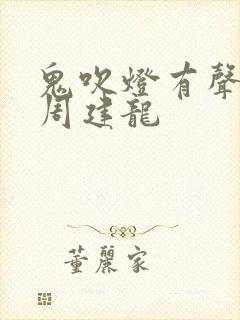 鬼吹燈有聲
周建龍
董麗家